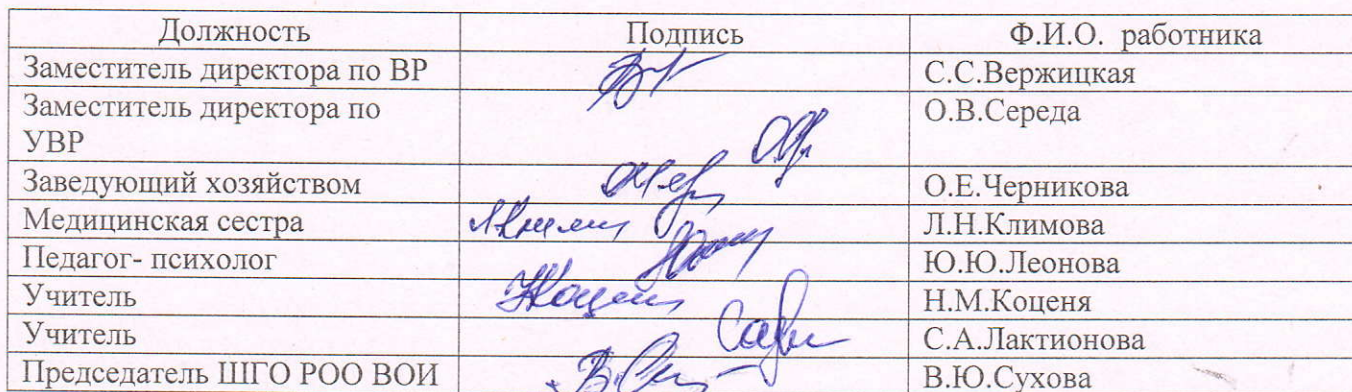 Должность Подпись Ф.И.О. работника
Заместитель директора по ВР С.С.Вержицкая
Заместитель директора по О.В.Середа
УВР
Заведующий хозяйством О.Е.Черникова
Медицинская сестра Л.Н.Климова
Педагог- психолог Ю.Ю.Леонова
Учитель Н.М.Коценя
Учитель С.А.Лактионова
Председатель ШГО РОО ВОИ В.Ю.Сухова